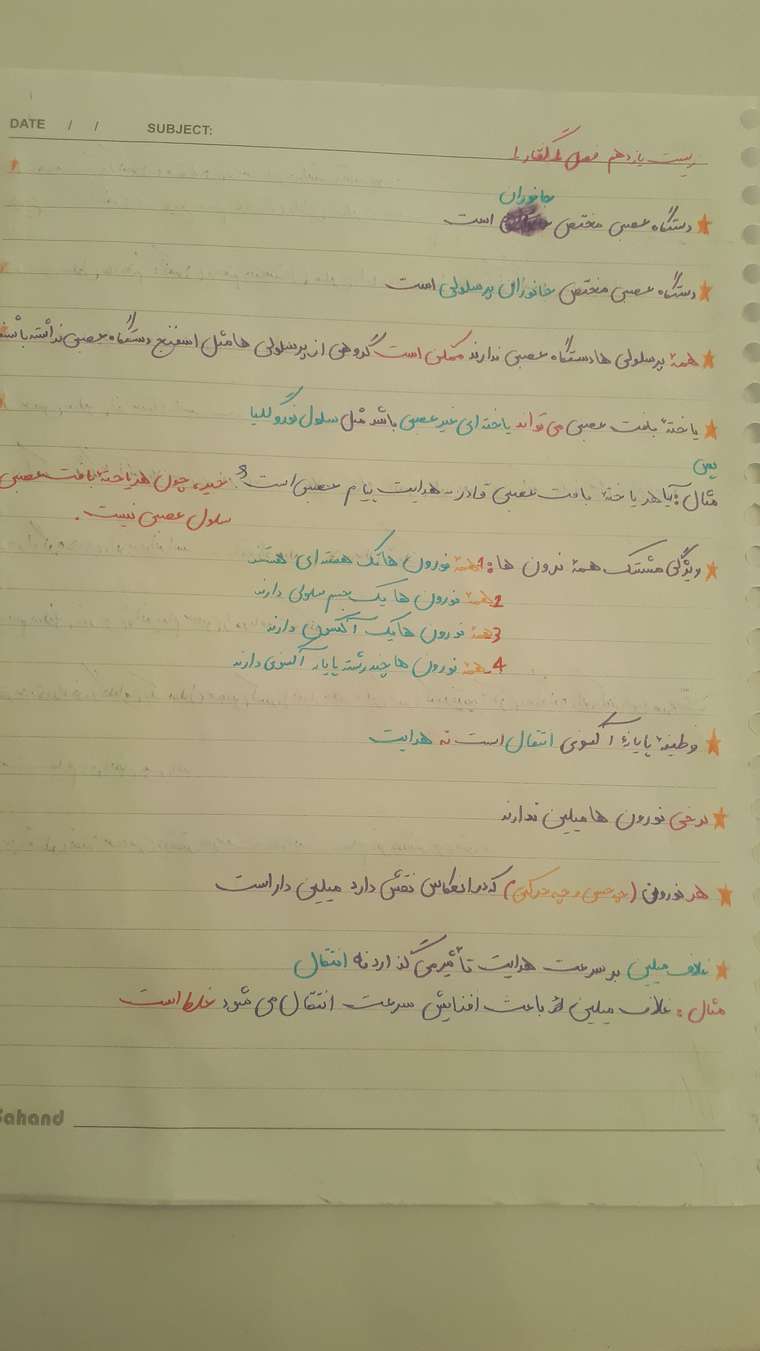 DATE / / SUBJECT:
زیست یازدهم فصل 1 گفتار 1
جانوران
دستگاه عصبی مختص است
دستگاه عصبی مختص جانوران پرسلولی است
همهٔ پرسلولی ها دستگاه عصبی ندارند ممکن است گروهی از پرسلولی ها مثل اسفنج دستگاه عصبی نداشته باشند
یاختهٔ بافت عصبی می تواند یاخته ای غیر عصبی باشد مثل سلول نوروگلیا
یعنی
مثال: آیا هر یاختهٔ بافت عصبی قادر به هدایت پیام عصبی است؟ خیر، چون هر یاختهٔ بافت عصبی
سلول عصبی نیست.
ویژگی مشترک همهٔ نرون ها: 1 همهٔ نورون ها تک هسته ای هستند
2 همهٔ نورون ها یک جسم سلولی دارند
3 همهٔ نورون ها یک آکسون دارند
4 همهٔ نورون ها چند رشته پایانه آکسونی دارند
وظیفهٔ پایانهٔ آکسونی انتقال است نه هدایت
برخی نورون ها میلین ندارند
هر نورونی (چه حسی و چه حرکتی) که در انعکاس نقش دارد میلین دار است
غلاف میلین بر سرعت هدایت تأثیر می گذارد نه انتقال
مثال: غلاف میلین باعث افزایش سرعت انتقال می شود غلط است
Sahand